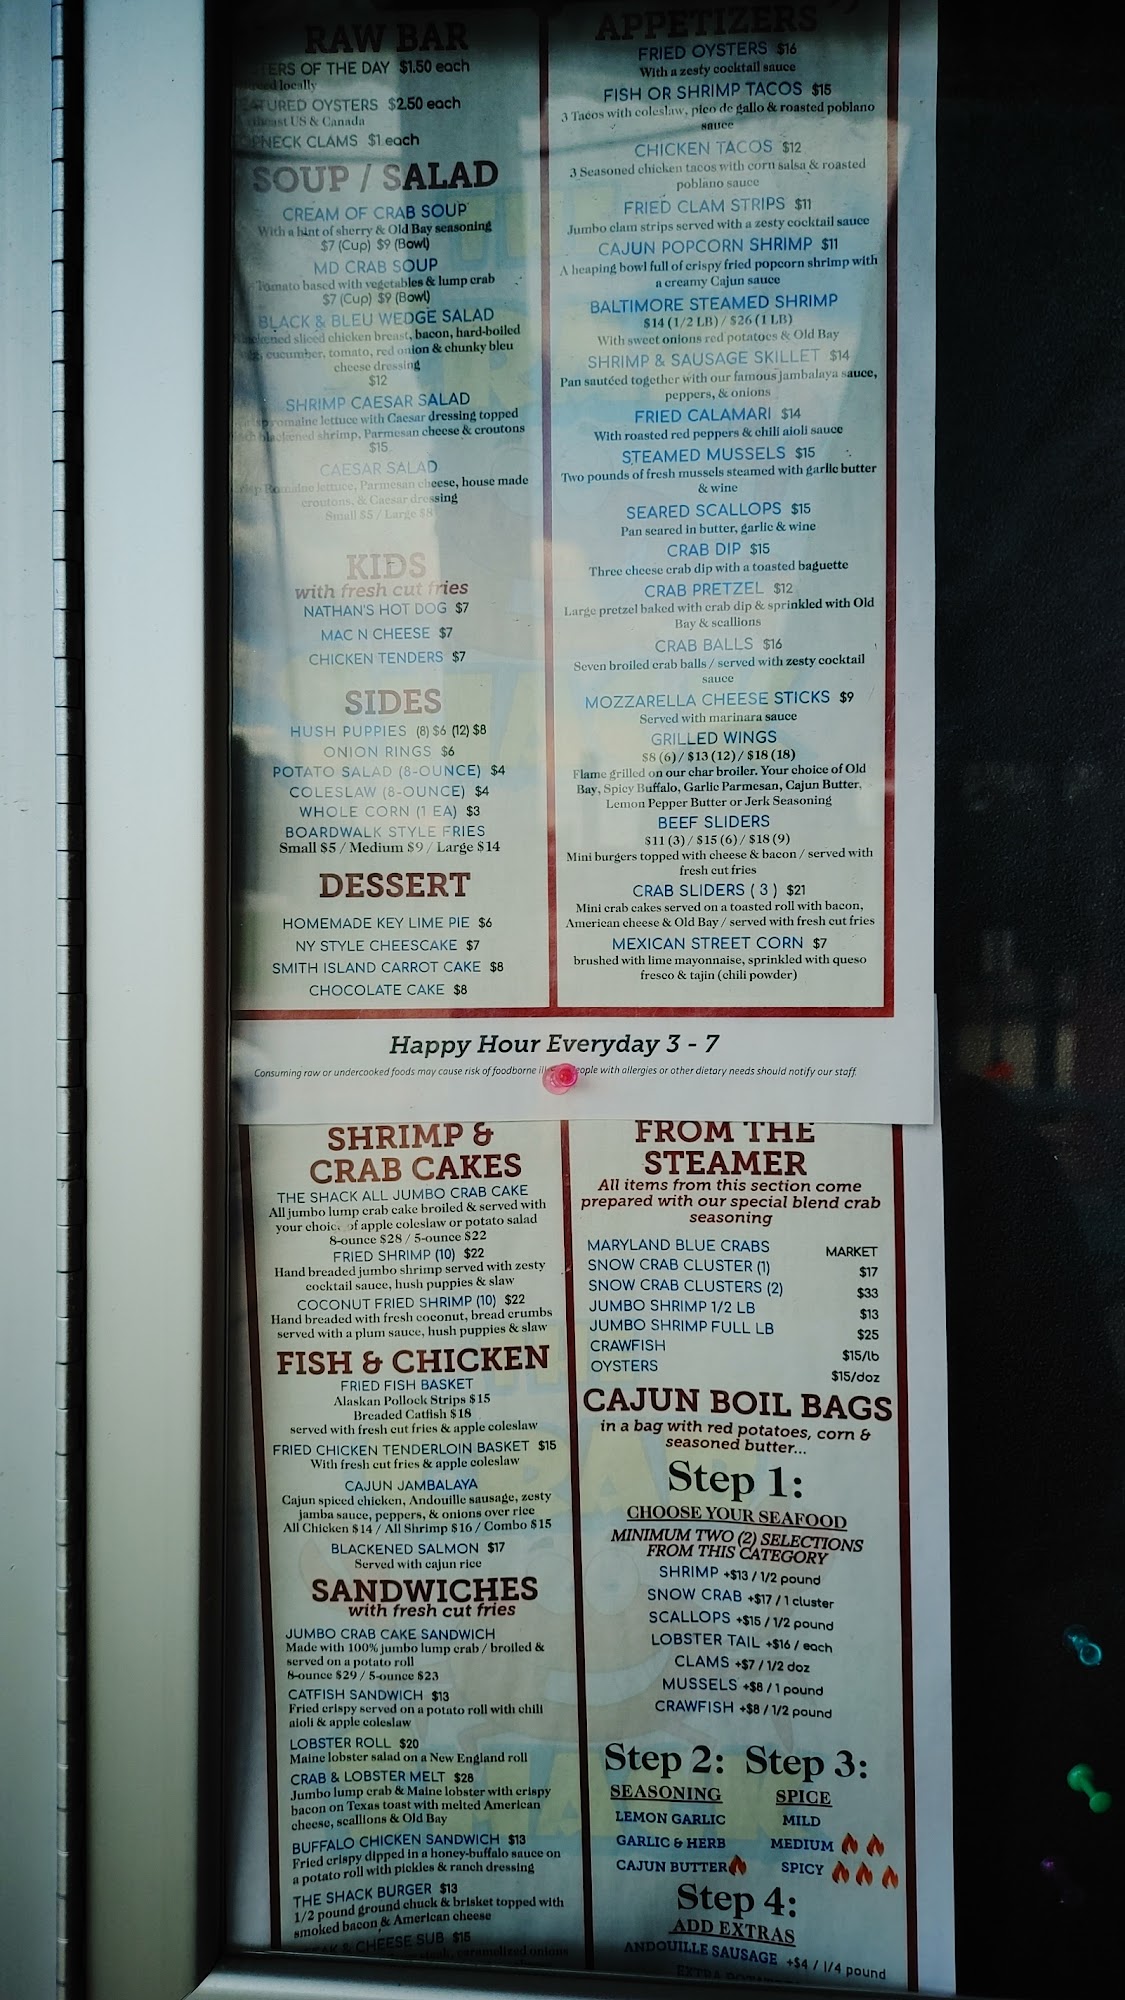 RAW BAR
OF THE DAY $1.50 each
locally
OYSTERS $2.50 each
US & Canada
CLAMS $1 each
SOUP / SALAD
CREAM OF CRAB SOUP
With a hint of sherry & Old Bay seasoning
$7 (Cup) $9 (Bowl)
MD CRAB SOUP
Tomato based with vegetables & lump crab
$7 (Cup) $9 (Bowl)
BLACK & BLEU WEDGE SALAD
sliced chicken breast, bacon, hard-boiled
cucumber, tomato, red onion & chunky bleu
cheese dressing
$12
SHRIMP CAESAR SALAD
romaine lettuce with Caesar dressing topped
blackened shrimp, Parmesan cheese & croutons
$15
CAESAR SALAD
Romaine lettuce, Parmesan cheese, house made
croutons, & Caesar dressing
Small $5 / Large $8
KIDS
with fresh cut fries
NATHAN'S HOT DOG $7
MAC N CHEESE $7
CHICKEN TENDERS $7
SIDES
HUSH PUPPIES (8) $6 (12) $8
ONION RINGS $6
POTATO SALAD (8-OUNCE) $4
COLESLAW (8-OUNCE) $4
WHOLE CORN (1 EA) $3
BOARDWALK STYLE FRIES
Small $5 / Medium $9 / Large $14
DESSERT
HOMEMADE KEY LIME PIE $6
NY STYLE CHEESCAKE $7
SMITH ISLAND CARROT CAKE $8
CHOCOLATE CAKE $8
APPETIZERS
FRIED OYSTERS $16
With a zesty cocktail sauce
FISH OR SHRIMP TACOS $15
3 Tacos with coleslaw, pico de gallo & roasted poblano
sauce
CHICKEN TACOS $12
3 Seasoned chicken tacos with corn salsa & roasted
poblano sauce
FRIED CLAM STRIPS $11
Jumbo clam strips served with a zesty cocktail sauce
CAJUN POPCORN SHRIMP $11
A heaping bowl full of crispy fried popcorn shrimp with
a creamy Cajun sauce
BALTIMORE STEAMED SHRIMP
$14 (1/2 LB) / $26 (1 LB)
With sweet onions red potatoes & Old Bay
SHRIMP & SAUSAGE SKILLET $14
Pan sautéed together with our famous jambalaya sauce,
peppers, & onions
FRIED CALAMARI $14
With roasted red peppers & chili aioli sauce
STEAMED MUSSELS $15
Two pounds of fresh mussels steamed with garlic butter
& wine
SEARED SCALLOPS $15
Pan seared in butter, garlic & wine
CRAB DIP $15
Three cheese crab dip with a toasted baguette
CRAB PRETZEL $12
Large pretzel baked with crab dip & sprinkled with Old
Bay & scallions
CRAB BALLS $16
Seven broiled crab balls / served with zesty cocktail
sauce
MOZZARELLA CHEESE STICKS $9
Served with marinara sauce
GRILLED WINGS
$8 (6) / $13 (12) / $18 (18)
Flame grilled on our char broiler. Your choice of Old
Bay, Spicy Buffalo, Garlic Parmesan, Cajun Butter,
Lemon Pepper Butter or Jerk Seasoning
BEEF SLIDERS
$11 (3) / $15 (6) / $18 (9)
Mini burgers topped with cheese & bacon / served with
fresh cut fries
CRAB SLIDERS ( 3 ) $21
Mini crab cakes served on a toasted roll with bacon,
American cheese & Old Bay / served with fresh cut fries
MEXICAN STREET CORN $7
brushed with lime mayonnaise, sprinkled with queso
fresco & tajin (chili powder)
Happy Hour Everyday 3 - 7
Consuming raw or undercooked foods may cause risk of foodborne with allergies or other dietary needs should notify our staff.
SHRIMP &
CRAB CAKES
THE SHACK ALL JUMBO CRAB CAKE
All jumbo lump crab cake broiled & served with
your choice of apple coleslaw or potato salad
8-ounce $28 / 5-ounce $22
FRIED SHRIMP (10) $22
Hand breaded jumbo shrimp served with zesty
cocktail sauce, hush puppies & slaw
COCONUT FRIED SHRIMP (10) $22
Hand breaded with fresh coconut, bread crumbs
served with a plum sauce, hush puppies & slaw
FISH & CHICKEN
FRIED FISH BASKET
Alaskan Pollock Strips $15
Breaded Catfish $18
served with fresh cut fries & apple coleslaw
FRIED CHICKEN TENDERLOIN BASKET $15
With fresh cut fries & apple coleslaw
CAJUN JAMBALAYA
Cajun spiced chicken, Andouille sausage, zesty
jamba sauce, peppers, & onions over rice
All Chicken $14 / All Shrimp $16 / Combo $15
BLACKENED SALMON $17
Served with cajun rice
SANDWICHES
with fresh cut fries
JUMBO CRAB CAKE SANDWICH
Made with 100% jumbo lump crab / broiled &
served on a potato roll
8-ounce $29 / 5-ounce $23
CATFISH SANDWICH $13
Fried crispy served on a potato roll with chili
aioli & apple coleslaw
LOBSTER ROLL $20
Maine lobster salad on a New England roll
CRAB & LOBSTER MELT $28
Jumbo lump crab & Maine lobster with crispy
bacon on Texas toast with melted American
cheese, scallions & Old Bay
BUFFALO CHICKEN SANDWICH $13
Fried crispy dipped in a honey-buffalo sauce on
a potato roll with pickles & ranch dressing
THE SHACK BURGER $13
1/2 pound ground chuck & brisket topped with
smoked bacon & American cheese
& CHEESE SUB $15
steak, caramelized onions
FROM THE
STEAMER
All items from this section come
prepared with our special blend crab
seasoning
MARYLAND BLUE CRABS MARKET
SNOW CRAB CLUSTER (1) $17
SNOW CRAB CLUSTERS (2) $33
JUMBO SHRIMP 1/2 LB $13
JUMBO SHRIMP FULL LB $25
CRAWFISH $15/lb
OYSTERS $15/doz
CAJUN BOIL BAGS
in a bag with red potatoes, corn &
seasoned butter...
Step 1:
CHOOSE YOUR SEAFOOD
MINIMUM TWO (2) SELECTIONS
FROM THIS CATEGORY
SHRIMP +$13 / 1/2 pound
SNOW CRAB +$17 / 1 cluster
SCALLOPS +$15 / 1/2 pound
LOBSTER TAIL +$16 / each
CLAMS +$7 / 1/2 doz
MUSSELS +$8 / 1 pound
CRAWFISH +$8 / 1/2 pound
Step 2: Step 3:
SEASONING SPICE
LEMON GARLIC MILD
GARLIC & HERB MEDIUM
CAJUN BUTTER SPICY
Step 4:
ADD EXTRAS
ANDOUILLE SAUSAGE +$4 / 1/4 pound
EXTRA